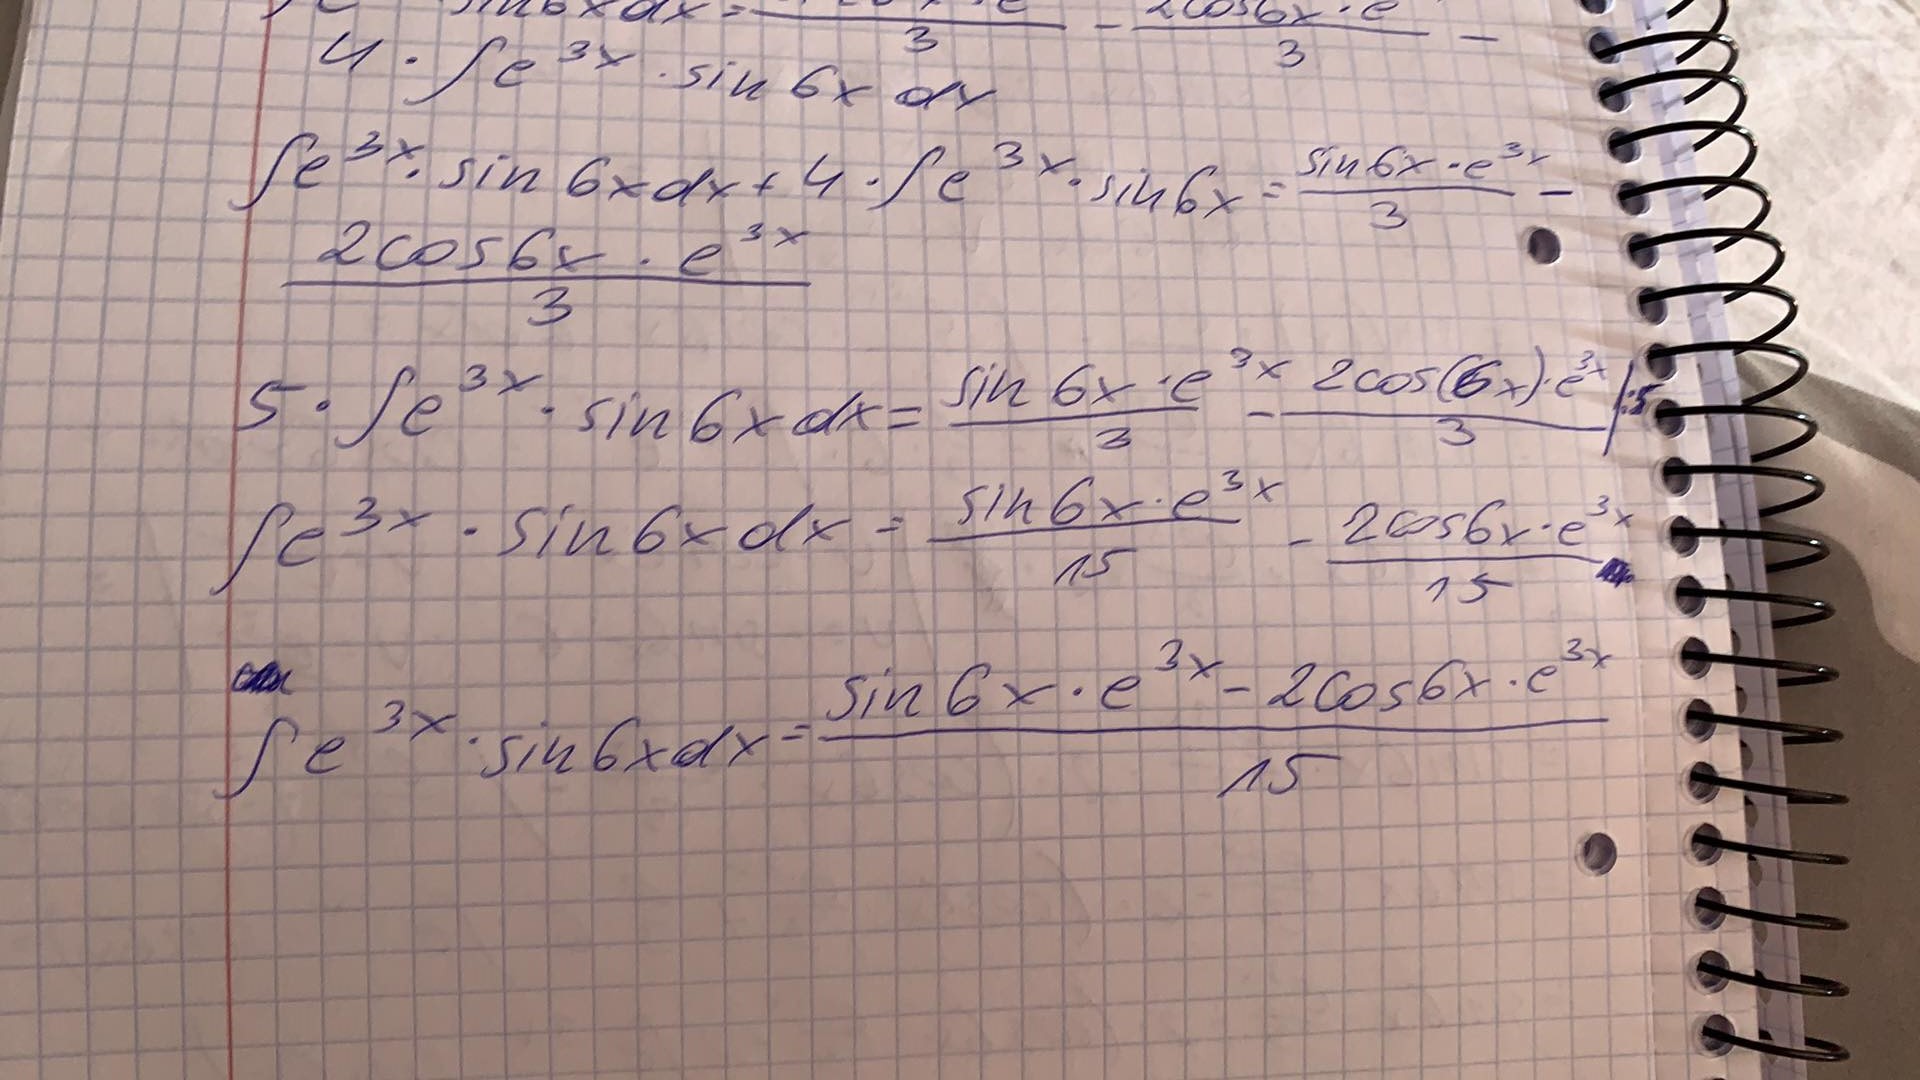 sin6xdx = e / 3 - 2cos6x · e / 3 -
4 · ∫e^3x · sin 6x dx
∫e^3x · sin 6x dx + 4 · ∫e^3x · sin6x = sin6x · e^3x / 3 -
2cos6x · e^3x / 3
5 · ∫e^3x · sin 6x dx = sin 6x · e^3x / 3 - 2cos(6x) · e^3x / 3 | :5
∫e^3x · sin6x dx = sin6x · e^3x / 15 - 2cos6x · e^3x / 15
∫e^3x · sin6xdx = sin 6x · e^3x - 2cos6x · e^3x / 15